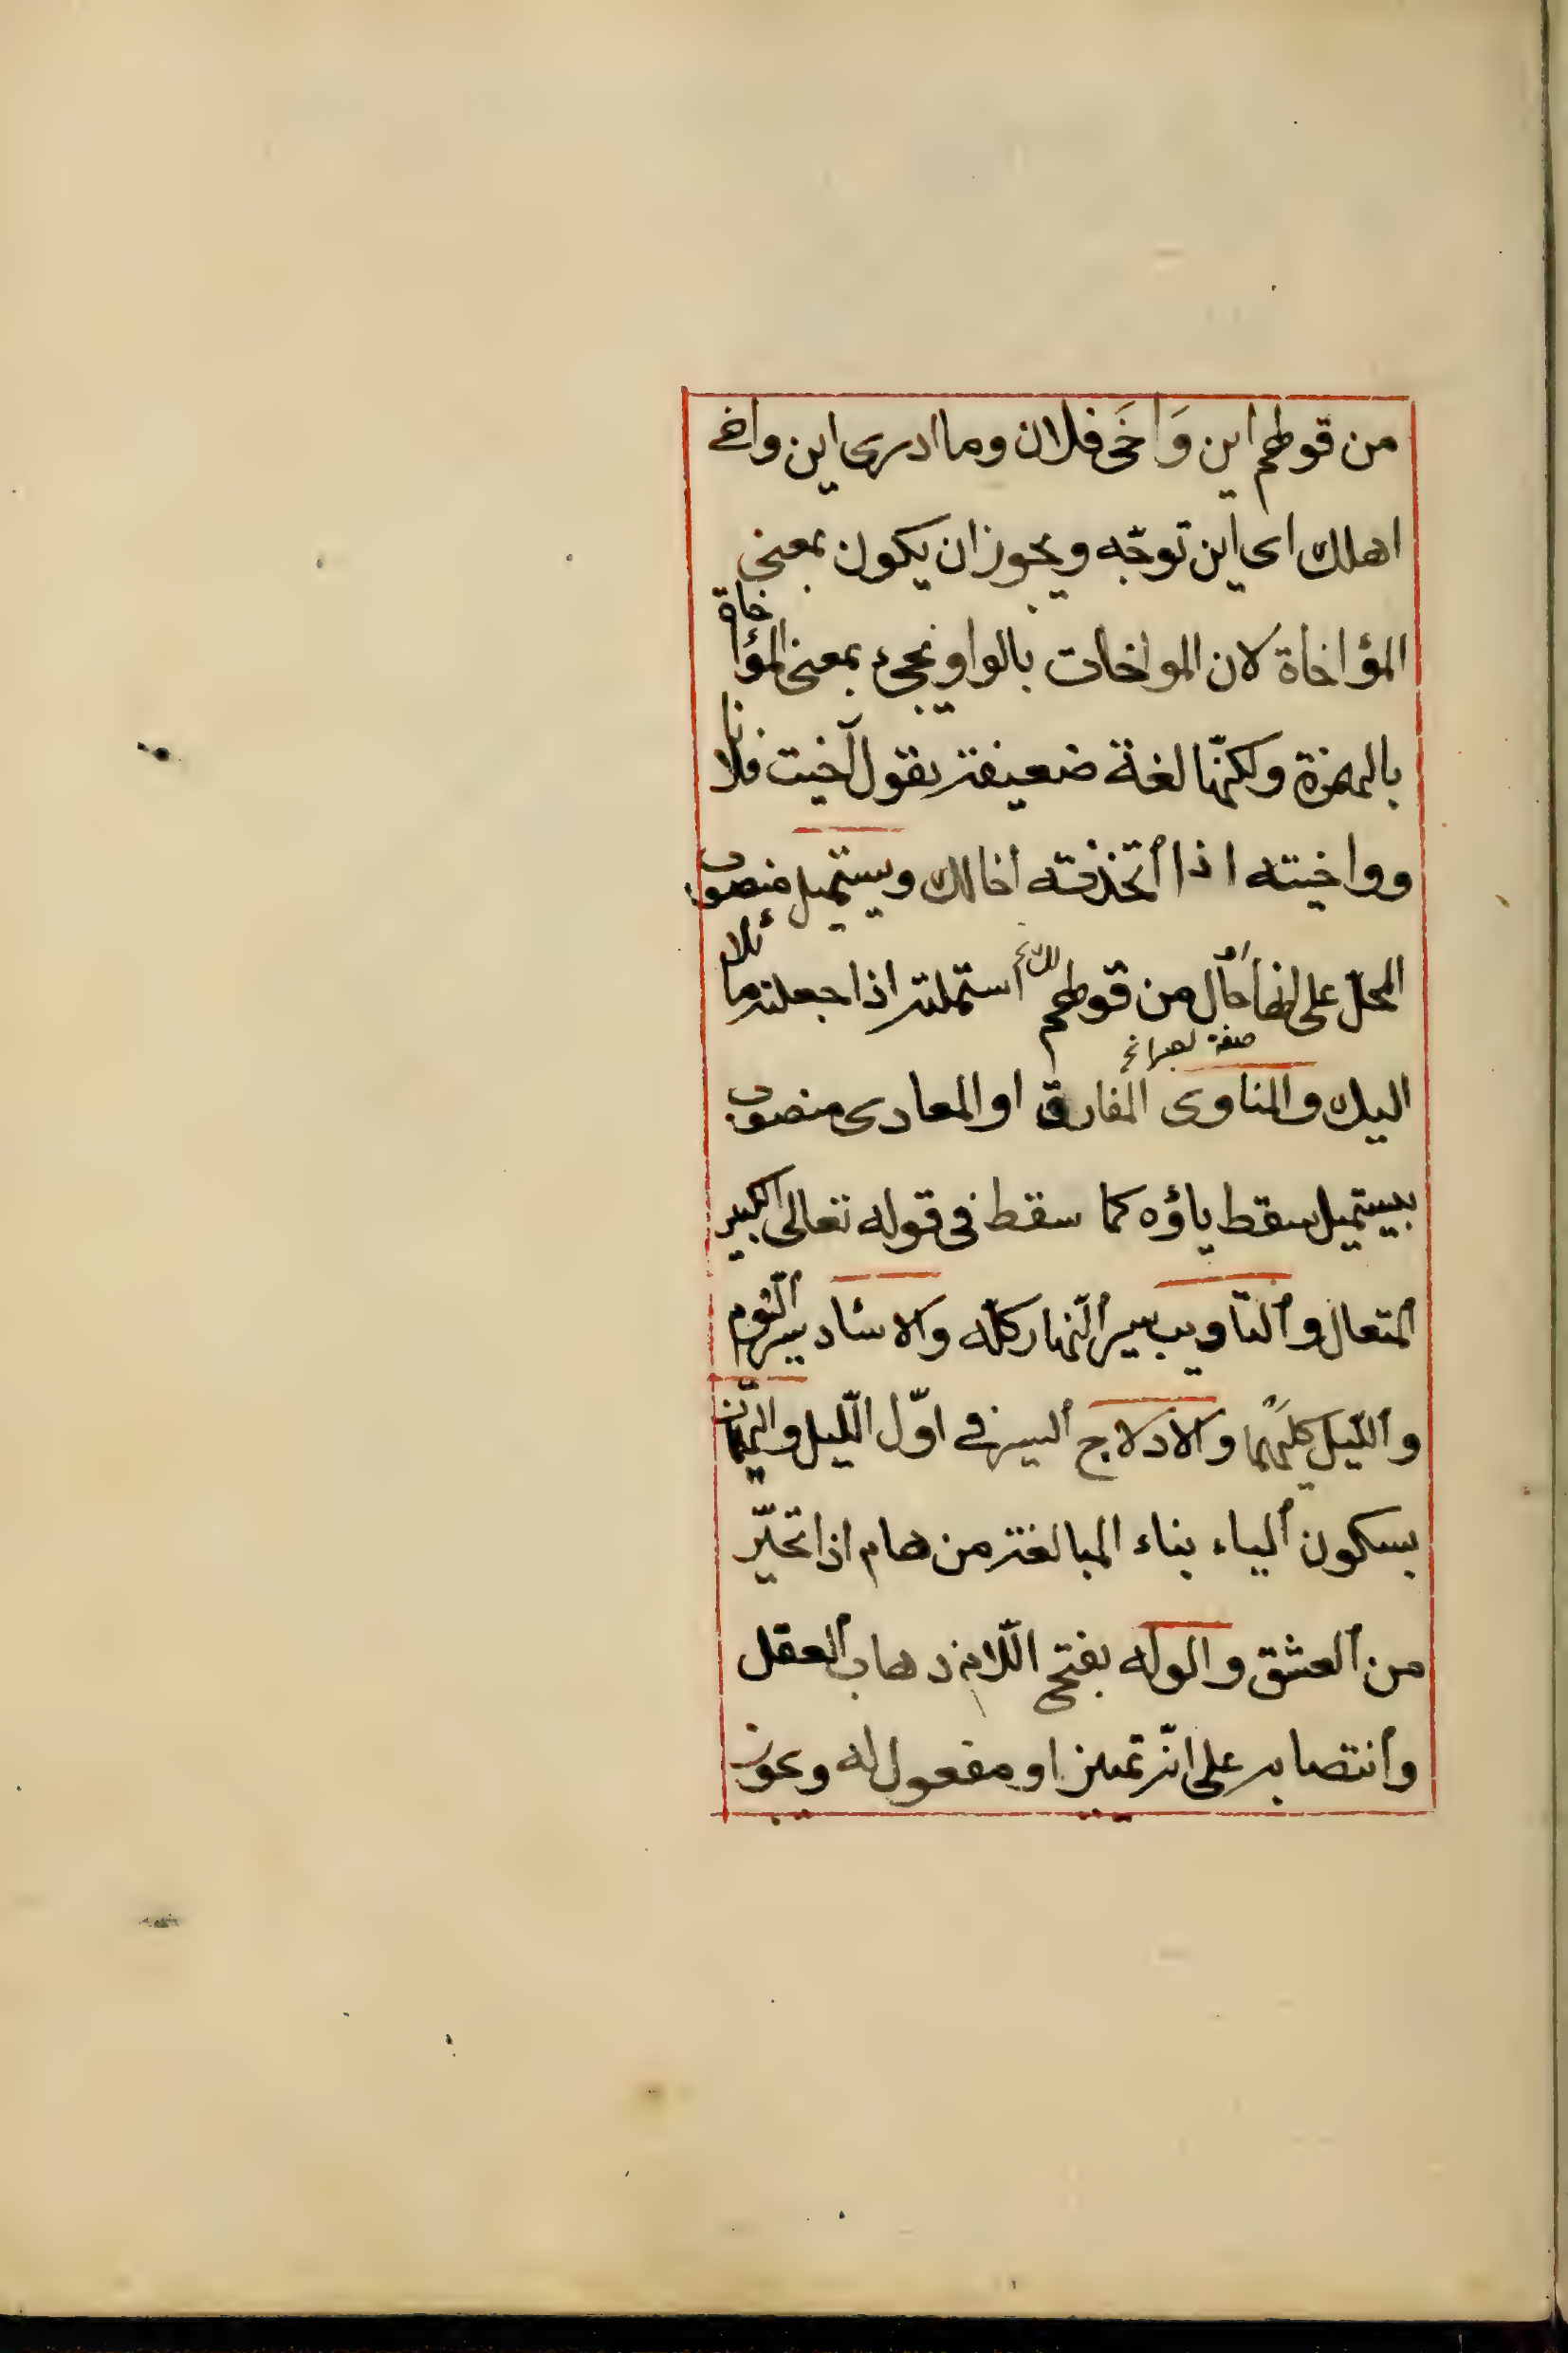 من قولهم اين وَاخَى فلان وما ادرى اين واخى
اهلك اى اين توجّه ويجوز ان يكون بمعنى
المؤاخاة لان المواخات بالواو يجىء بمعنى المؤاخاة
بالهمزة ولكنّها لغة ضعيفة يقول آخيت فلانا
وواخيته اذا اتّخذته اخا لك ويستميل منصوب
المحل على انها حال من قولهم استملته اذا جعلته مائلا
صفة
اليك والمناوى المفارق او المعادى منصوب
بيستميل سقط ياؤه كما سقط فى قوله تعالى الكبير
المتعال والتاويب سير النهار كلّه والاسئاد سير اليوم
والليل كليهما والادلاج السير فى اوّل الليل والهيمان
بسكون الياء بناء المبالغة من هام اذا تحيّر
من العشق والوله بفتح اللام ذهاب العقل
وانتصابه على انّه تمييز او مفعول له ويجوز